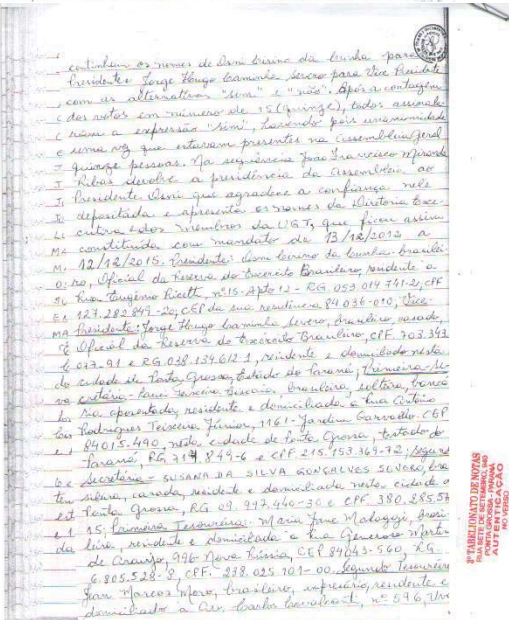 continham os nomes de Osni Cirino da Cunha para
Presidente e Jorge Hugo Caminha Severo para Vice Presidente
com as alternativas "sim" e "não". Após a contagem
dos votos em número de 15 (quinze), todos assinala
ram a expressão "sim", havendo pois unanimidade
uma vez que estavam presentes na Assembleia Geral
quinze pessoas. Na sequência João Francisco Miranda
Ribas devolve a presidência da assembleia ao
Presidente Osni que agradece a confiança nele
depositada e apresenta os nomes da Diretoria Exe-
cutiva e dos membros da UGT, que ficou assim
constituída com mandato de 13/12/2012 a
12/12/2015. Presidente: Osni Cirino da Cunha - brasilei-
ro, Oficial da Reserva do Exercito Brasileiro, residente a
Rua Eugênio nº 15 - Apto 12 - RG. 053.014.741-2, CPF
127.282.849-20, CEP da sua residência 84036-010, Vice
Presidente: Jorge Hugo Caminha Severo, brasileiro casado,
Oficial da Reserva do Exercito Brasileiro, CPF. 703.343
077-91 e RG 038.139.612-1, residente e domiciliado nesta
cidade de Ponta Grossa, Estado do Paraná, Primeira-Se-
cretária - brasileira, solteira, bancá
ria aposentada, residente e domiciliada a Rua Antonio
Rodrigues Teixeira Júnior, 1161 - Jardim Carvalho - CEP
84015-490, nesta cidade de Ponta Grossa, Estado do
Paraná, RG 719.849-6 e CPF 215.153.369-72, Segun
Secretária - SUSANA DA SILVA GONÇALVES SEVERO, bra
sileira, casada, residente e domiciliada nesta cidade
Ponta Grossa, RG 09.997.440-30 e CPF. 380.285.57
15; Primeira Tesoureira: Maria Jane brasi
leira, residente e domiciliada a Rua Generoso Martin
de Araujo, 996 - Nova Rússia, CEP. 84043-560, RG.
6.805.528-8, CPF. 238.025.701-00. Segundo Tesoureiro
Jean Marcos Moro, brasileiro, empresário, residente e
domiciliado a Av. Carlos Cavalcanti, nº 596,
3º TABELIONATO DE NOTAS
RUA SETE DE SETEMBRO, 940
PONTA GROSSA - PARANÁ
AUTENTICAÇÃO
NO VERSO